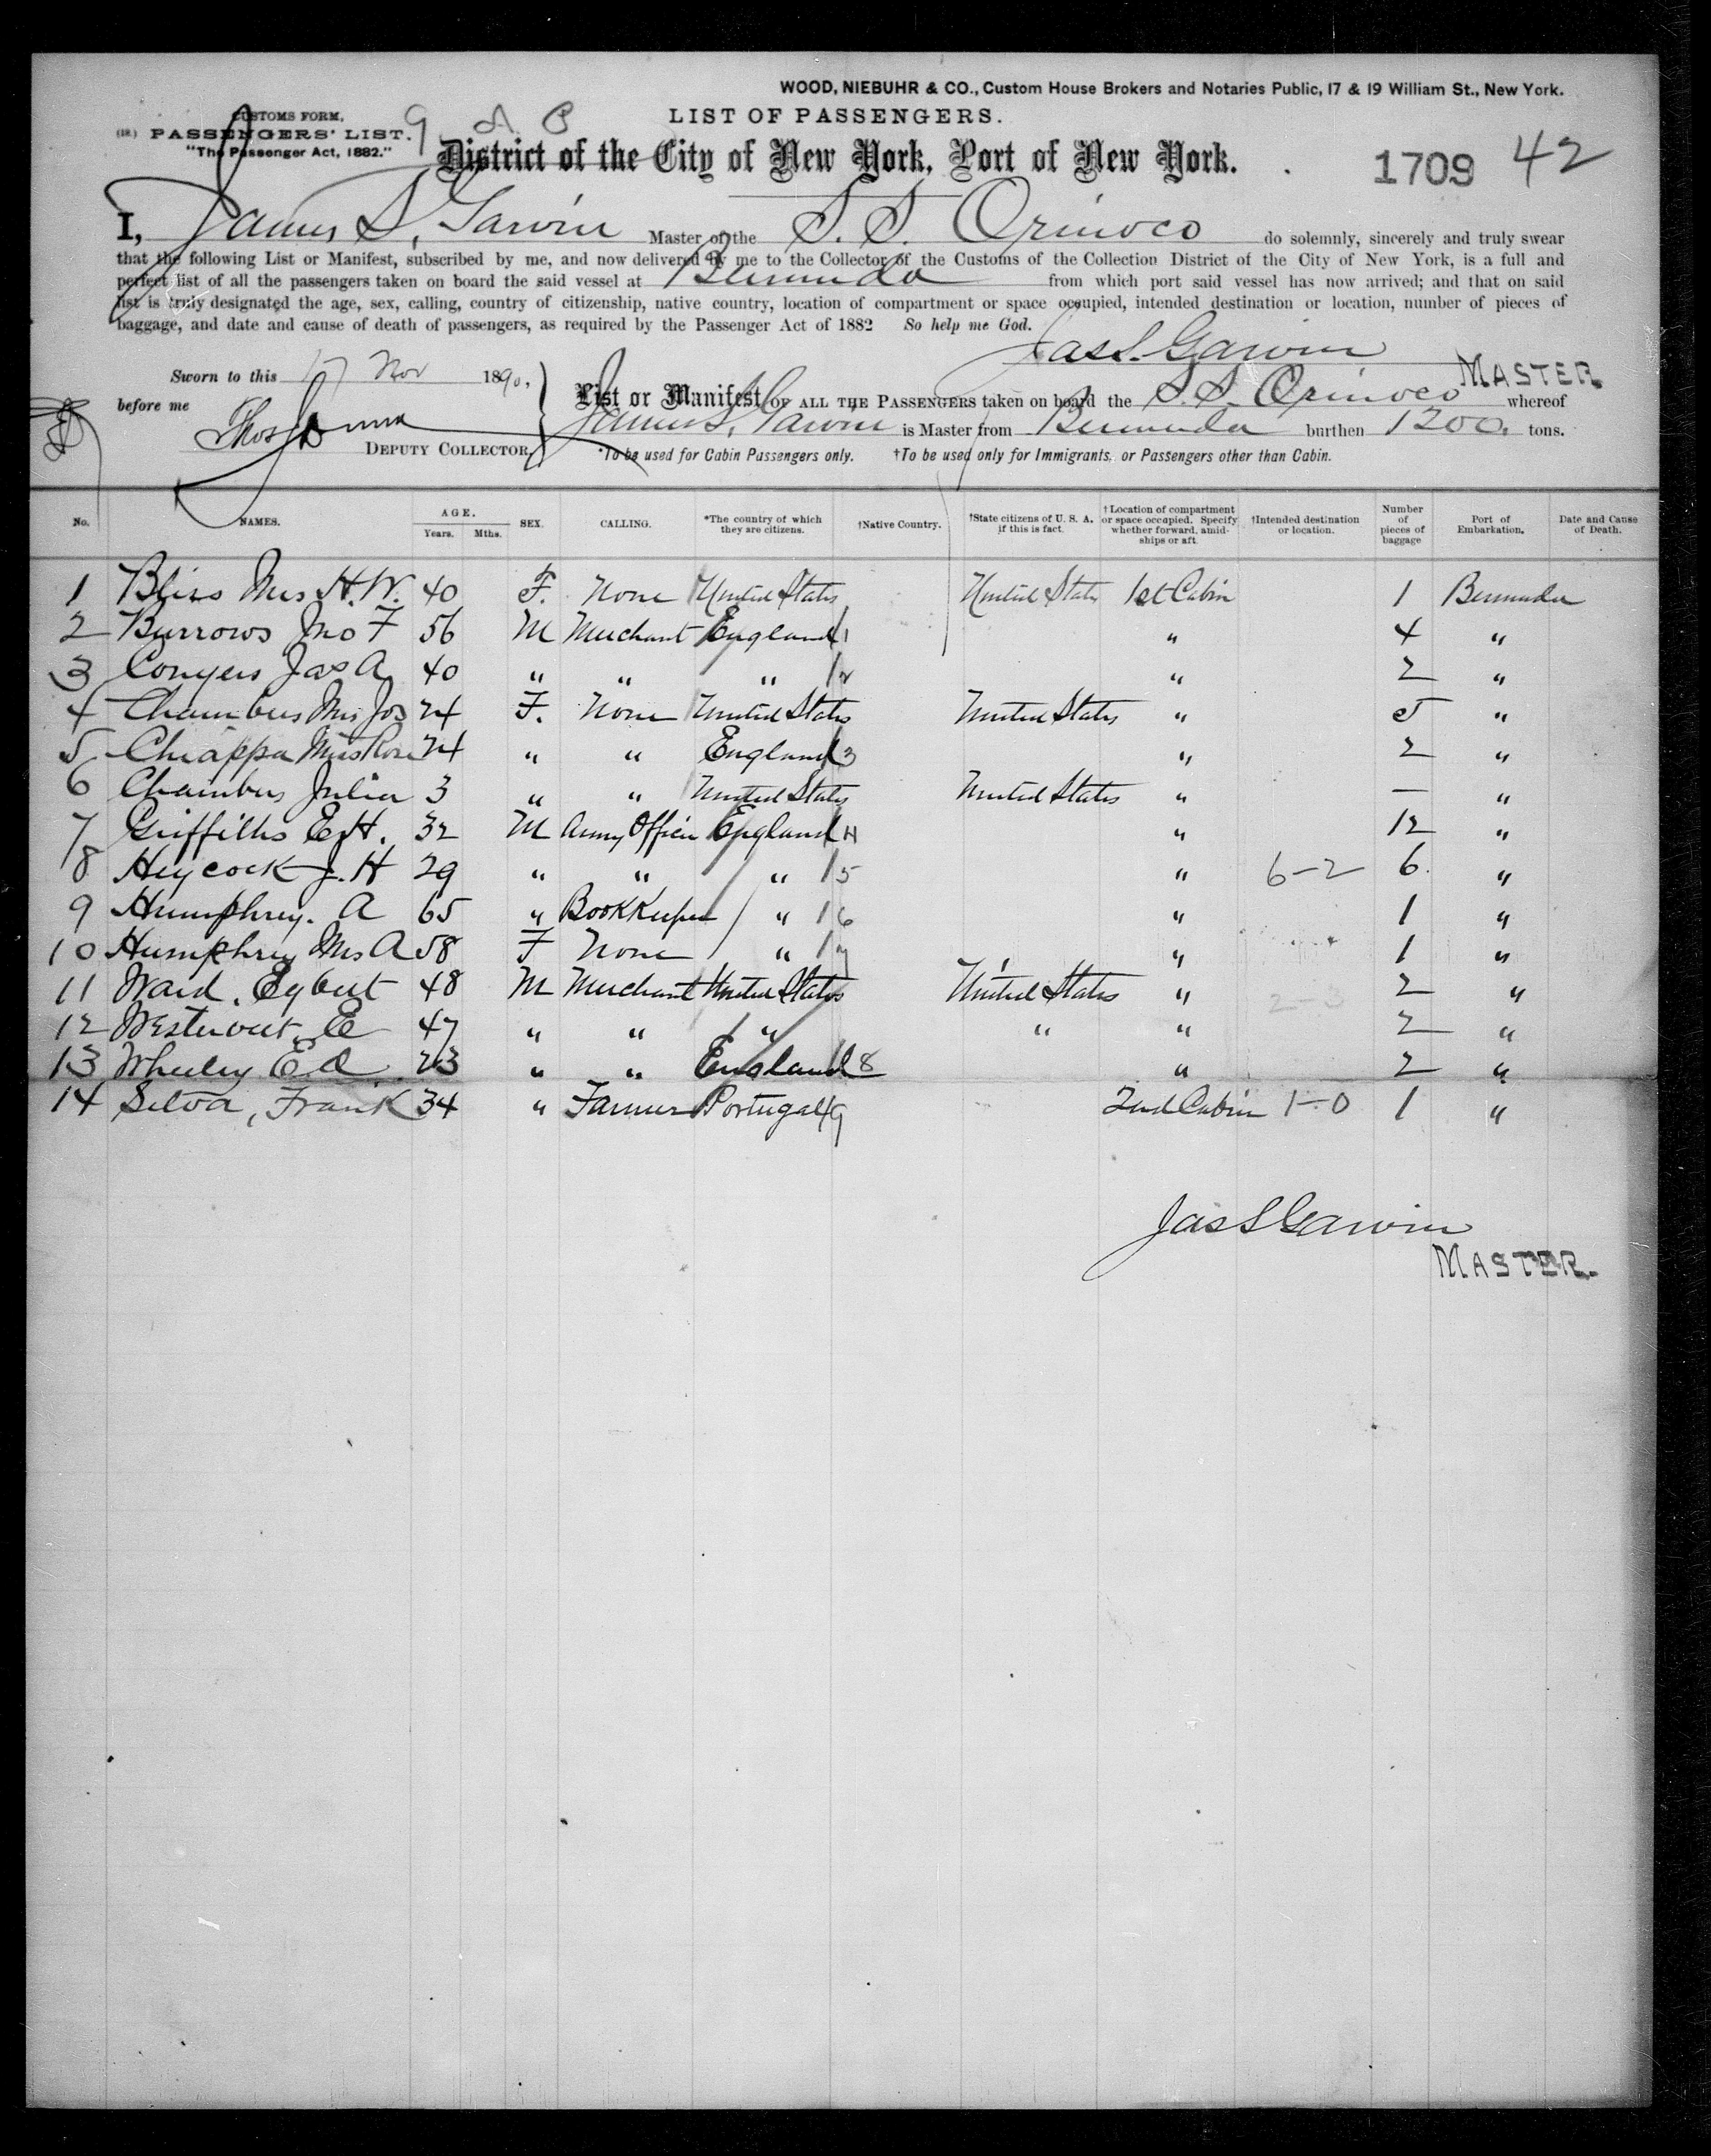 WOOD, NIEBUHR & CO., Custom House Brokers and Notaries Public, 17 & 19 William St., New York.
CUSTOMS FORM.
(18.) PASSENGERS' LIST.
"The Passenger Act, 1882."
9 A P
LIST OF PASSENGERS.
District of the City of New York, Port of New York.
1709 42
I, James S. Garvin Master of the S. S. Orinoco do solemnly, sincerely and truly swear
that the following List or Manifest, subscribed by me, and now delivered by me to the Collector of the Customs of the Collection District of the City of New York, is a full and
perfect list of all the passengers taken on board the said vessel at Bermuda from which port said vessel has now arrived; and that on said
list is truly designated the age, sex, calling, country of citizenship, native country, location of compartment or space occupied, intended destination or location, number of pieces of
baggage, and date and cause of death of passengers, as required by the Passenger Act of 1882 So help me God.
Jas S. Garvin
MASTER
Sworn to this 17 Nov 1890,
before me
Thos
DEPUTY COLLECTOR
List or Manifest OF ALL THE PASSENGERS taken on board the S.S. Orinoco whereof
James S. Garvin is Master from Bermuda burthen 1200. tons.
*To be used for Cabin Passengers only. †To be used only for Immigrants, or Passengers other than Cabin.
No. NAMES. AGE. Years. Mths. SEX. CALLING. *The country of which they are citizens. †Native Country. †State citizens of U. S. A. if this is fact. †Location of compartment or space occupied. Specify whether forward, amidships or aft. †Intended destination or location. Number of pieces of baggage Port of Embarkation. Date and Cause of Death.
1 Bliss Mrs H. W. 40 F. None United States United States 1st Cabin 1 Bermuda
2 Burrows Jno F 56 M Merchant England 1 " 4 "
3 Conyers Jas A 40 " " " 2 " 2 "
4 Chambers Mrs Jos 24 F. None United States United States " 5 "
5 Chiappa Miss Rose 24 " " England 3 " 2 "
6 Chambers Julia 3 " " United States United States " — "
7 Griffiths E. H. 32 M Army Officer England 4 " 12 "
8 Heycock J. H 29 " " " 5 " 6-2 6 "
9 Humphrey. A 65 " BookKeeper " 6 " 1 "
10 Humphrey Mrs A 58 F None " 7 " 1 "
11 Ward. Egbert 48 M Merchant United States United States " 2-3 2 "
12 Westervelt. E 47 " " " " " 2 "
13 Wheeley E. A. 23 " " England 8 " 2 "
14 Silva, Frank 34 " Farmer Portugal 9 2nd Cabin 1-0 1 "
Jas S Garvin
MASTER.